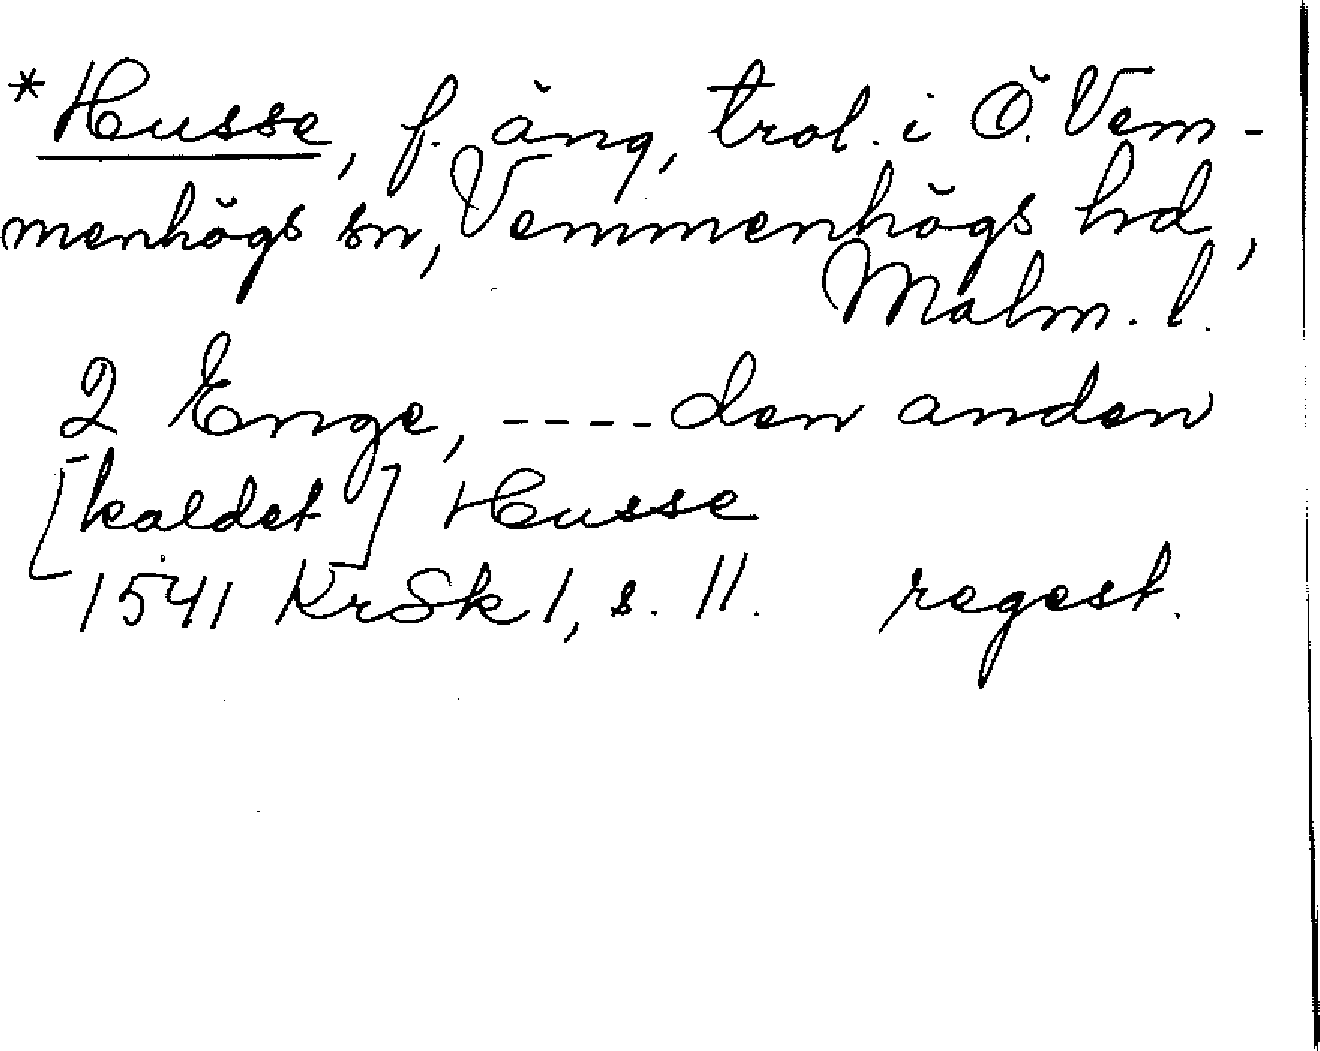 *Husse, f. äng, trol. i Ö. Vem-
menhögs sn, Vemmenhögs hd,
Malm. l.
2 Enge, ---- den anden
[kaldet] Husse
1541 KrSk 1, s. 11. regest.